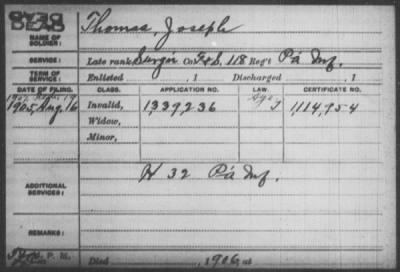 NAME OF SOLDIER: Thomas, Joseph
SERVICE: Late rank Surg'n Co. F & S, 118 Reg't Pa Inf.
TERM OF SERVICE: Enlisted , 1 Discharged , 1
DATE OF FILING. CLASS. APPLICATION NO. LAW. CERTIFICATE NO.
1905, Aug. 16 Invalid, 1,339,236 1,114,954
Widow,
Minor,
ADDITIONAL SERVICES: H 32 Pa Inf.
REMARKS:
P. M. Died , 1906, at